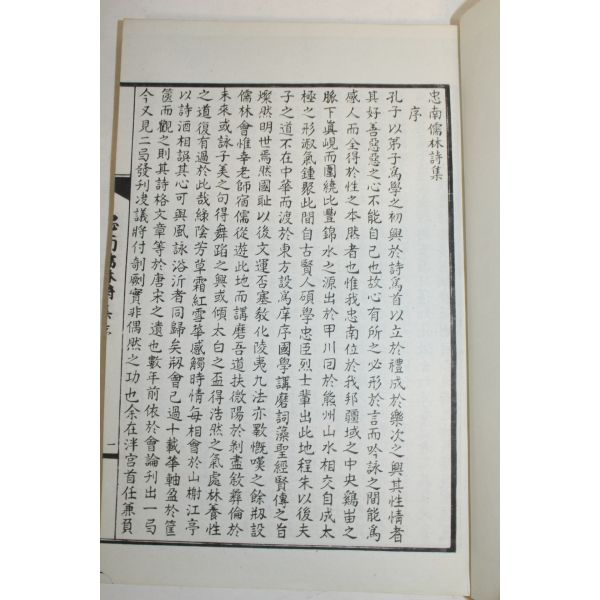 忠南儒林詩集
序
孔子以弟子爲學之初興於詩爲首以立於禮成於樂次之興其性情者
其好善惡惡之心不能自已也故心有所之必形於言而吟詠之間能爲
感人而全得於性之本然者也惟我忠南位於我邦疆域之中央鷄峀之
脈下眞峴而圍繞比豐錦水之源出於甲川回於熊州山水相交自成太
極之形淑氣鍾聚此間自古賢人碩學忠臣烈士輩出此地程朱以後夫
子之道不在中華而渡於東方設爲庠序國學講磨詞藻聖經賢傳之旨
燦然明世焉然國耻以後文運否塞敎化陵夷九法亦斁慨嘆之餘刱設
儒林會惟幸老師宿儒從遊此地而講磨吾道扶微陽於剝盡敘彝倫於
未來或詠子美之句得舞蹈之興或傾太白之盃得浩然之氣處林養性
之道復有過於此哉綠陰芳草霜紅雪華感觸時情每相會於山榭江亭
以詩酒相誤其心可與風詠浴沂者同歸矣刱會己過十載華軸盈於筐
篋而觀之則其詩格文章等於唐宋之遺也數年前依於會論刊出一号
今又見二号發刊决議將付剞劂實非偶然之功也余在泮宮首任兼負
一